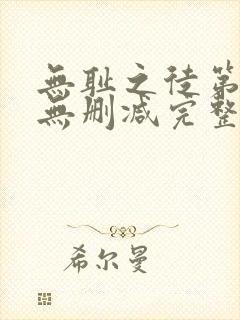 無耻之徒第
無删减完整
希尔曼